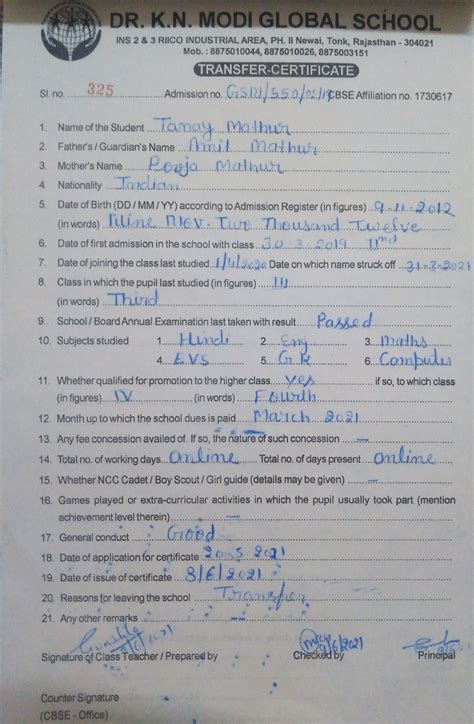 DR. K.N. MODI GLOBAL SCHOOL
INS 2 & 3 RIICO INDUSTRIAL AREA, PH. II Newai, Tonk, Rajasthan - 304021
Mob. : 8875010044, 8875010026, 8875003151
TRANSFER-CERTIFICATE
Sl. no. 325 Admission no. CBSE Affiliation no. 1730617
1. Name of the Student Tanay Mathur
2. Father's / Guardian's Name Amit Mathur
3. Mother's Name Pooja Mathur
4. Nationality Indian
5. Date of Birth (DD / MM / YY) according to Admission Register (in figures) 9.11.2012
(in words) Nine Nov. Two Thousand Twelve
6. Date of first admission in the school with class 30.3.2019 IInd
7. Date of joining the class last studied 1/4/2020 Date on which name struck off 31.3.2021
8. Class in which the pupil last studied (in figures) III
(in words) Third
9. School / Board Annual Examination last taken with result Passed
10. Subjects studied 1. Hindi 2. Eng 3. Maths
4. EVS 5. GK 6. Computer
11. Whether qualified for promotion to the higher class yes if so, to which class
(in figures) IV (in words) Fourth
12. Month up to which the school dues is paid March 2021
13. Any fee concession availed of. If so, the nature of such concession —
14. Total no. of working days online Total no. of days present online
15. Whether NCC Cadet / Boy Scout / Girl guide (details may be given) —
16. Games played or extra-curricular activities in which the pupil usually took part (mention
achievement level therein) —
17. General conduct Good
18. Date of application for certificate 20.5.2021
19. Date of issue of certificate 8/6/2021
20. Reasons for leaving the school Transfer
21. Any other remarks —
Signature of Class Teacher / Prepared by Checked by Principal
Counter Signature
(CBSE - Office)